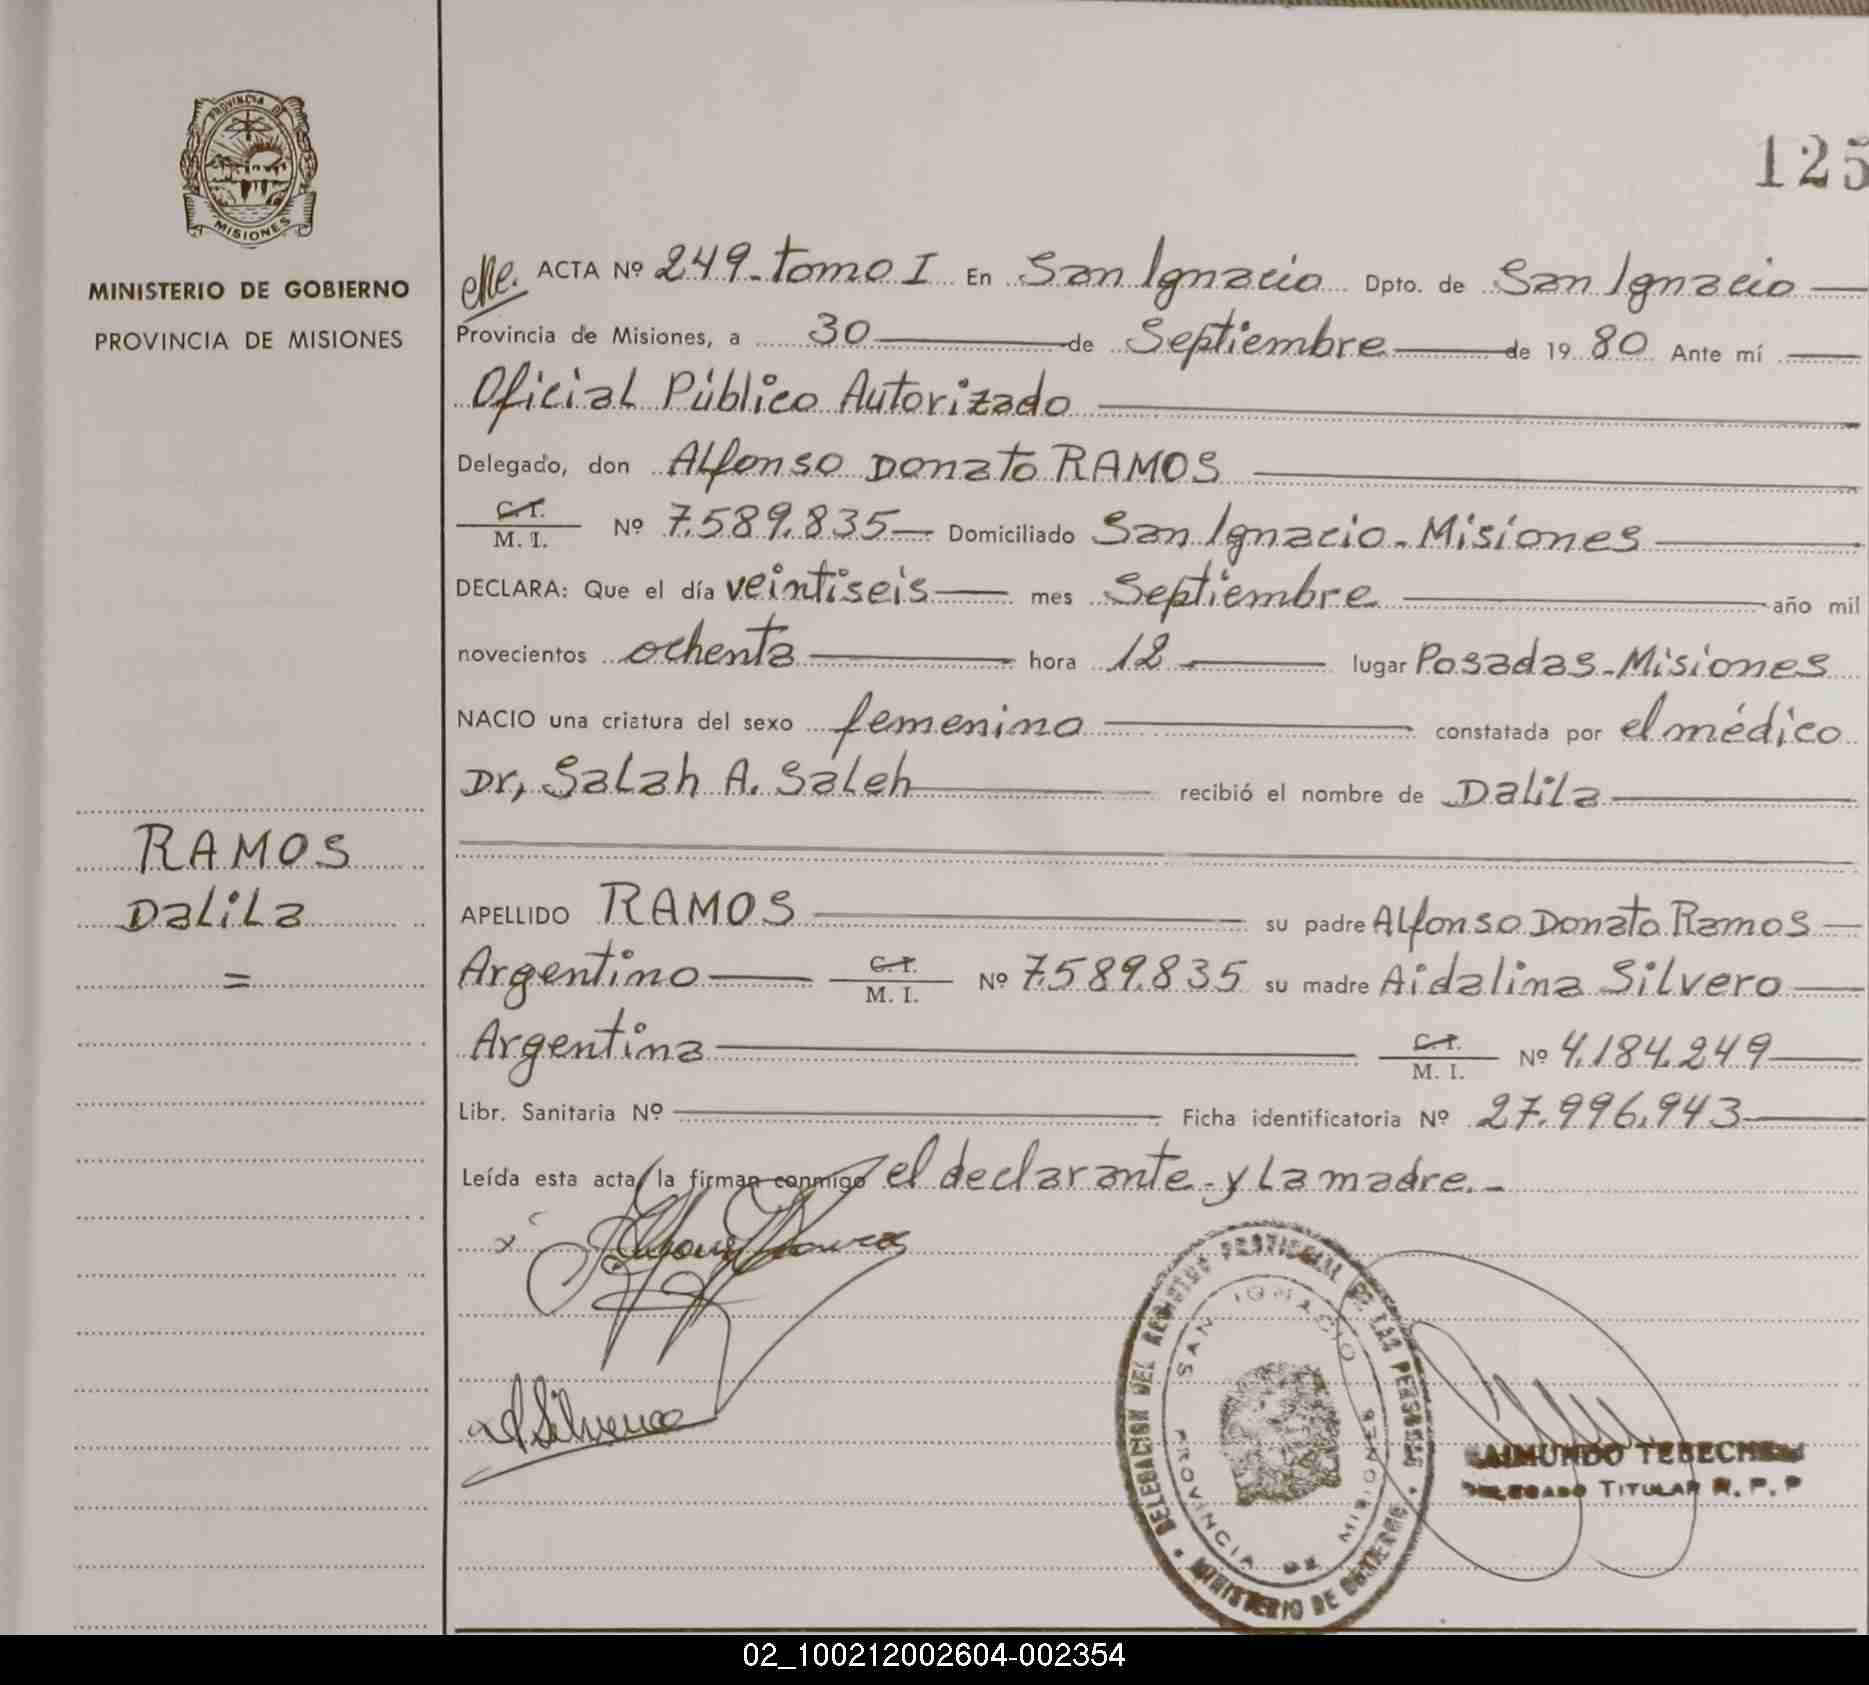 PROVINCIA DE
MISIONES
MINISTERIO DE GOBIERNO
PROVINCIA DE MISIONES
RAMOS
Dalila
=
125
ACTA Nº 249-tomo I En San Ignacio Dpto. de San Ignacio
Provincia de Misiones, a 30 de Septiembre de 19 80 Ante mí
Oficial Público Autorizado
Delegado, don Alfonso Donato RAMOS
C.I.
M. I. Nº 7.589.835 Domiciliado San Ignacio-Misiones
DECLARA: Que el día veintiseis mes Septiembre año mil
novecientos ochenta hora 12 lugar Posadas-Misiones
NACIO una criatura del sexo femenino constatada por el médico
Dr, Salah A. Saleh recibió el nombre de Dalila
APELLIDO RAMOS su padre Alfonso Donato Ramos
Argentino C.I. M. I. Nº 7.589.835 su madre Aidalina Silvero
Argentina C.I. M. I. Nº 4.184.249
Libr. Sanitaria Nº Ficha identificatoria Nº 27.996.943
Leída esta acta, la firman conmigo el declarante y la madre.-
DELEGACION DEL REGISTRO PROVINCIAL DE LAS PERSONAS
SAN IGNACIO
PROVINCIA DE MISIONES
MINISTERIO DE GOBIERNO
TITULAR R. P. P
02_100212002604-002354